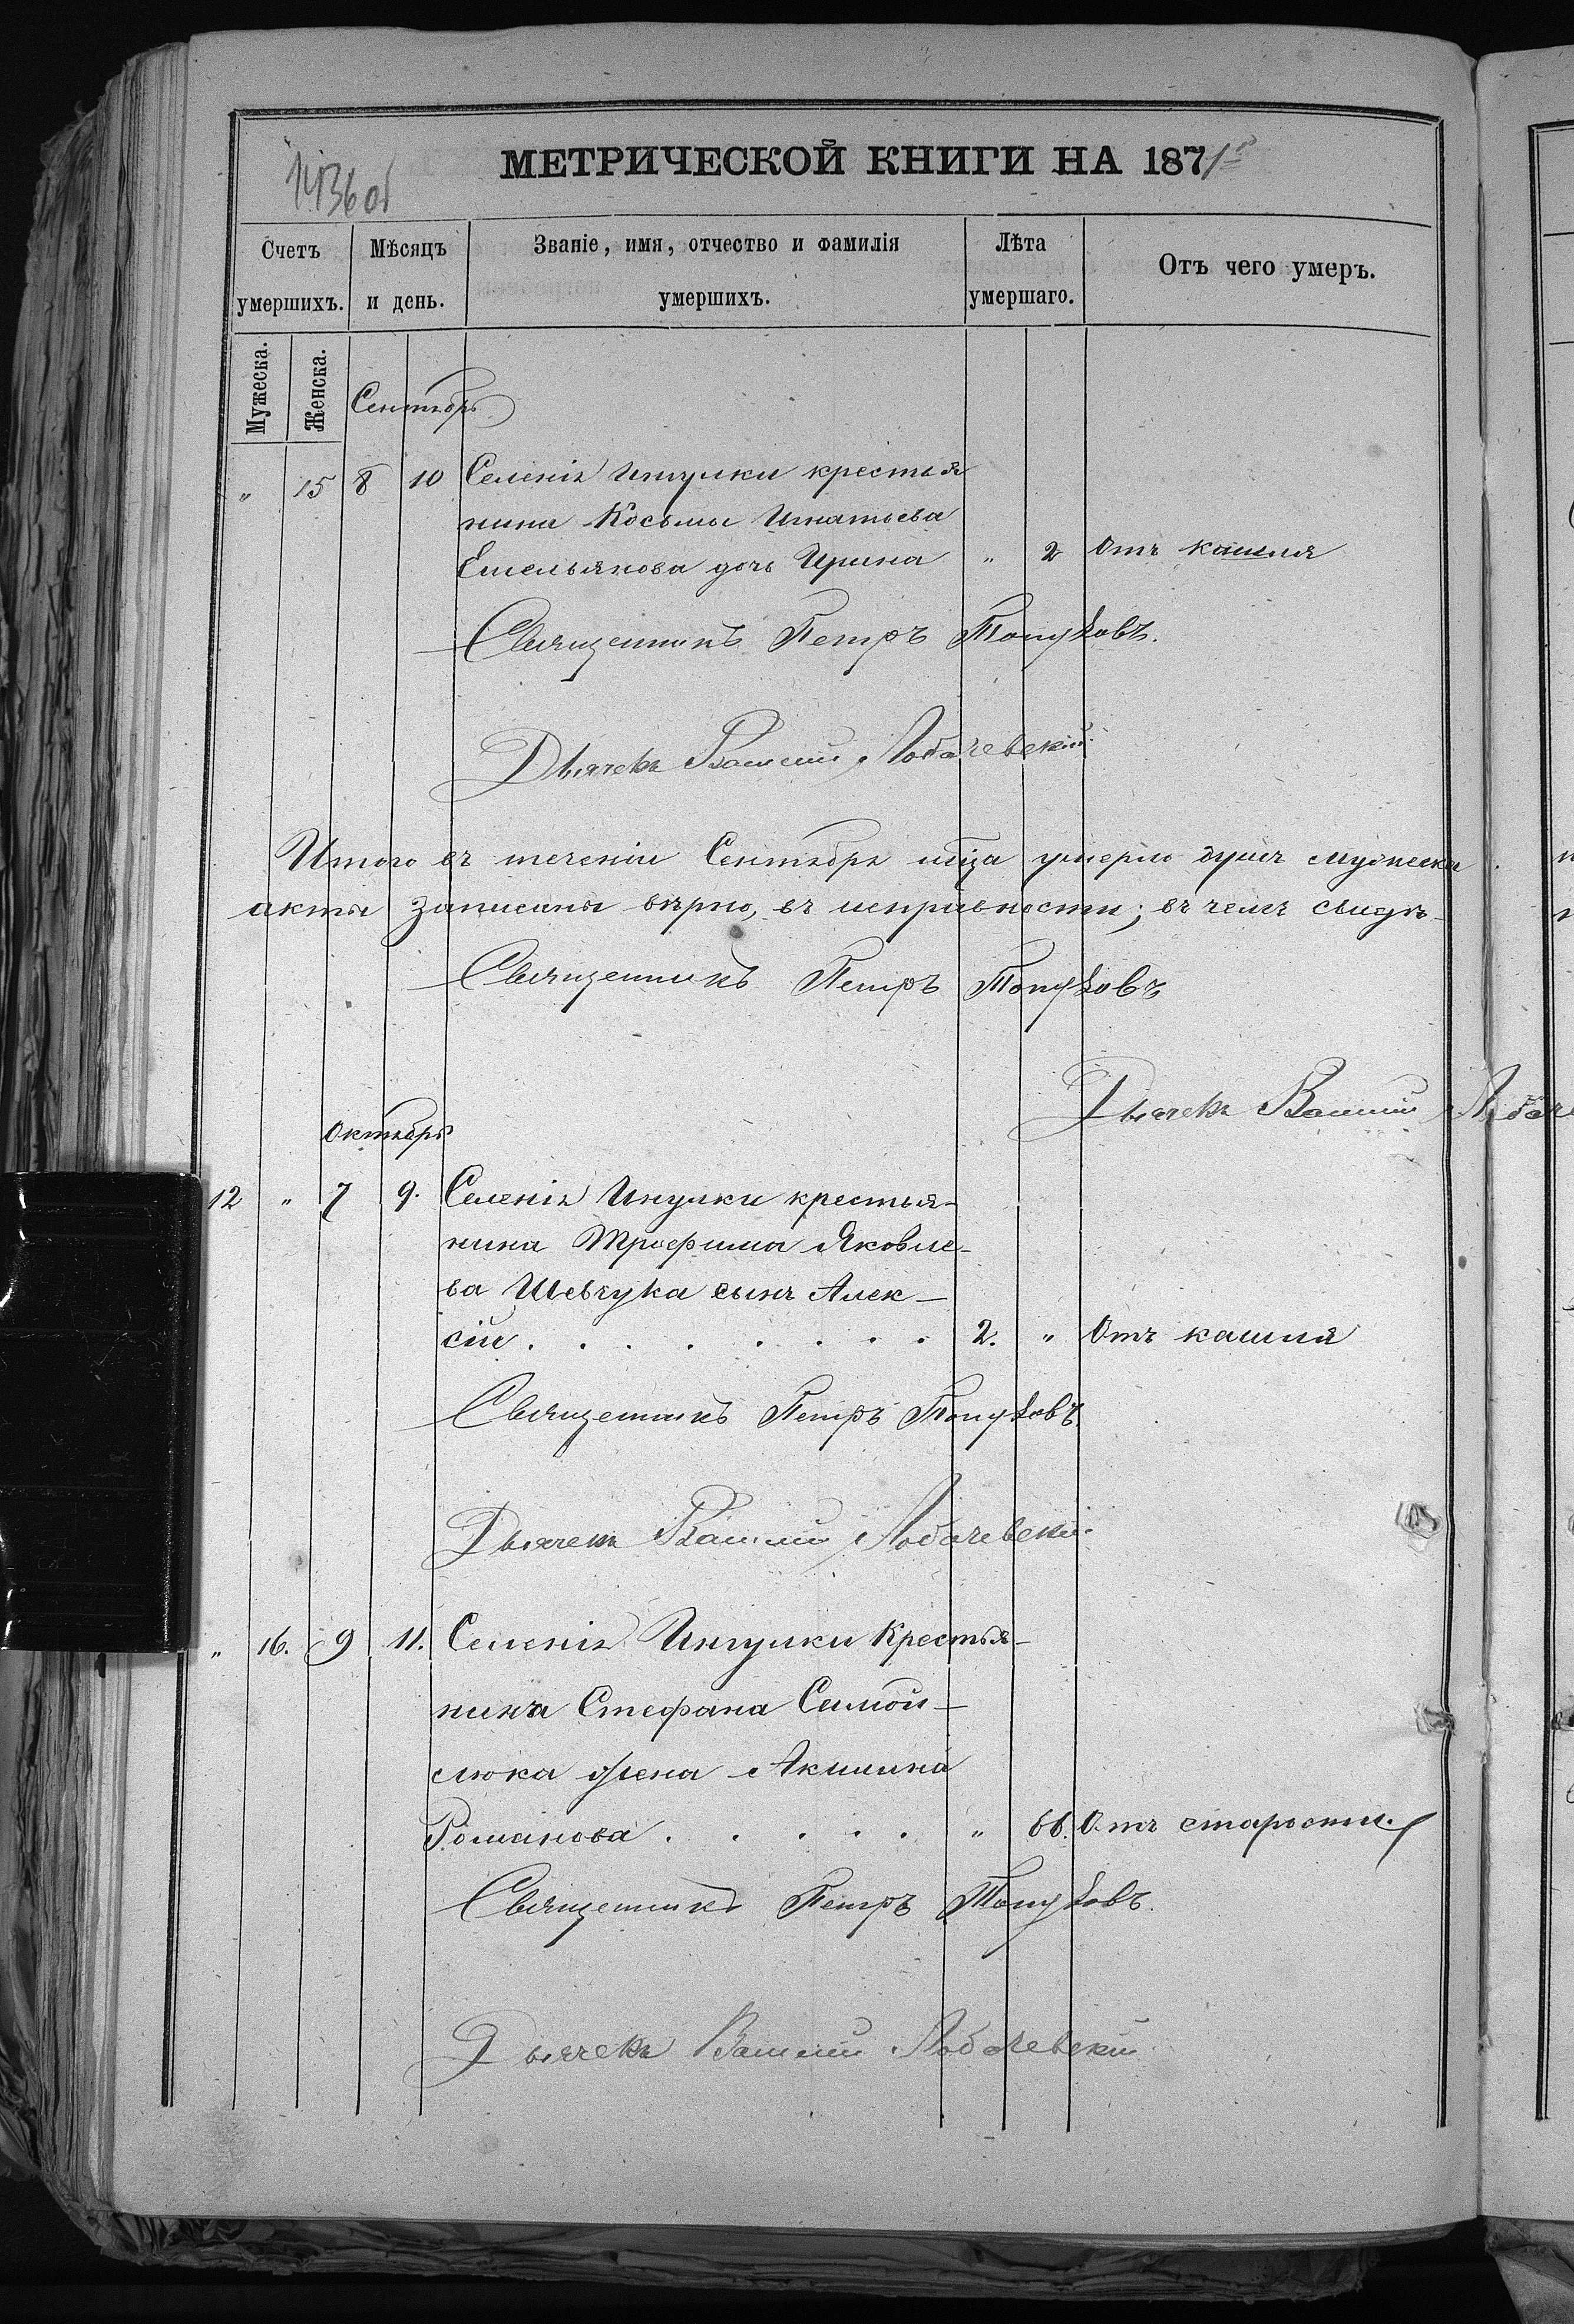 1436об
МЕТРИЧЕСКОЙ КНИГИ НА 1871 г
Счетъ умершихъ. Мѣсяцъ и день. Званіе, имя, отчество и фамилія умершихъ. Лѣта умершаго. Отъ чего умеръ.
Мужеска. Женска.
Сентябрь
" 15 8 10 Селенія Ингулки крестья
нина Косьмы Игнатьева
Емельянова дочь Ирина " 2 Отъ кашля
Священникъ Петръ
Дьячекъ Василій Лобачевскій
Итого въ теченіи Сентября мѣца умерло душъ мужеска
акты записаны вѣрно, въ исправности; въ чемъ свидѣ-
Священникъ Петръ
Дьячекъ Василій Лобаче
Октябрь
12 " 7 9. Селенія Ингулки крестья-
нина Трофима Яковле-
ва Шевчука сынъ Алек-
сій . . . . . . . . 2. " Отъ кашля
Священникъ Петръ
Дьячекъ Василій Лобачевскій
" 16. 9 11. Селенія Ингулки Крестья-
нина Стефана Самой-
люка жена Акилина
Романова . . . . . " 66. Отъ старости.
Священникъ Петръ
Дьячекъ Василій Лобачевскій